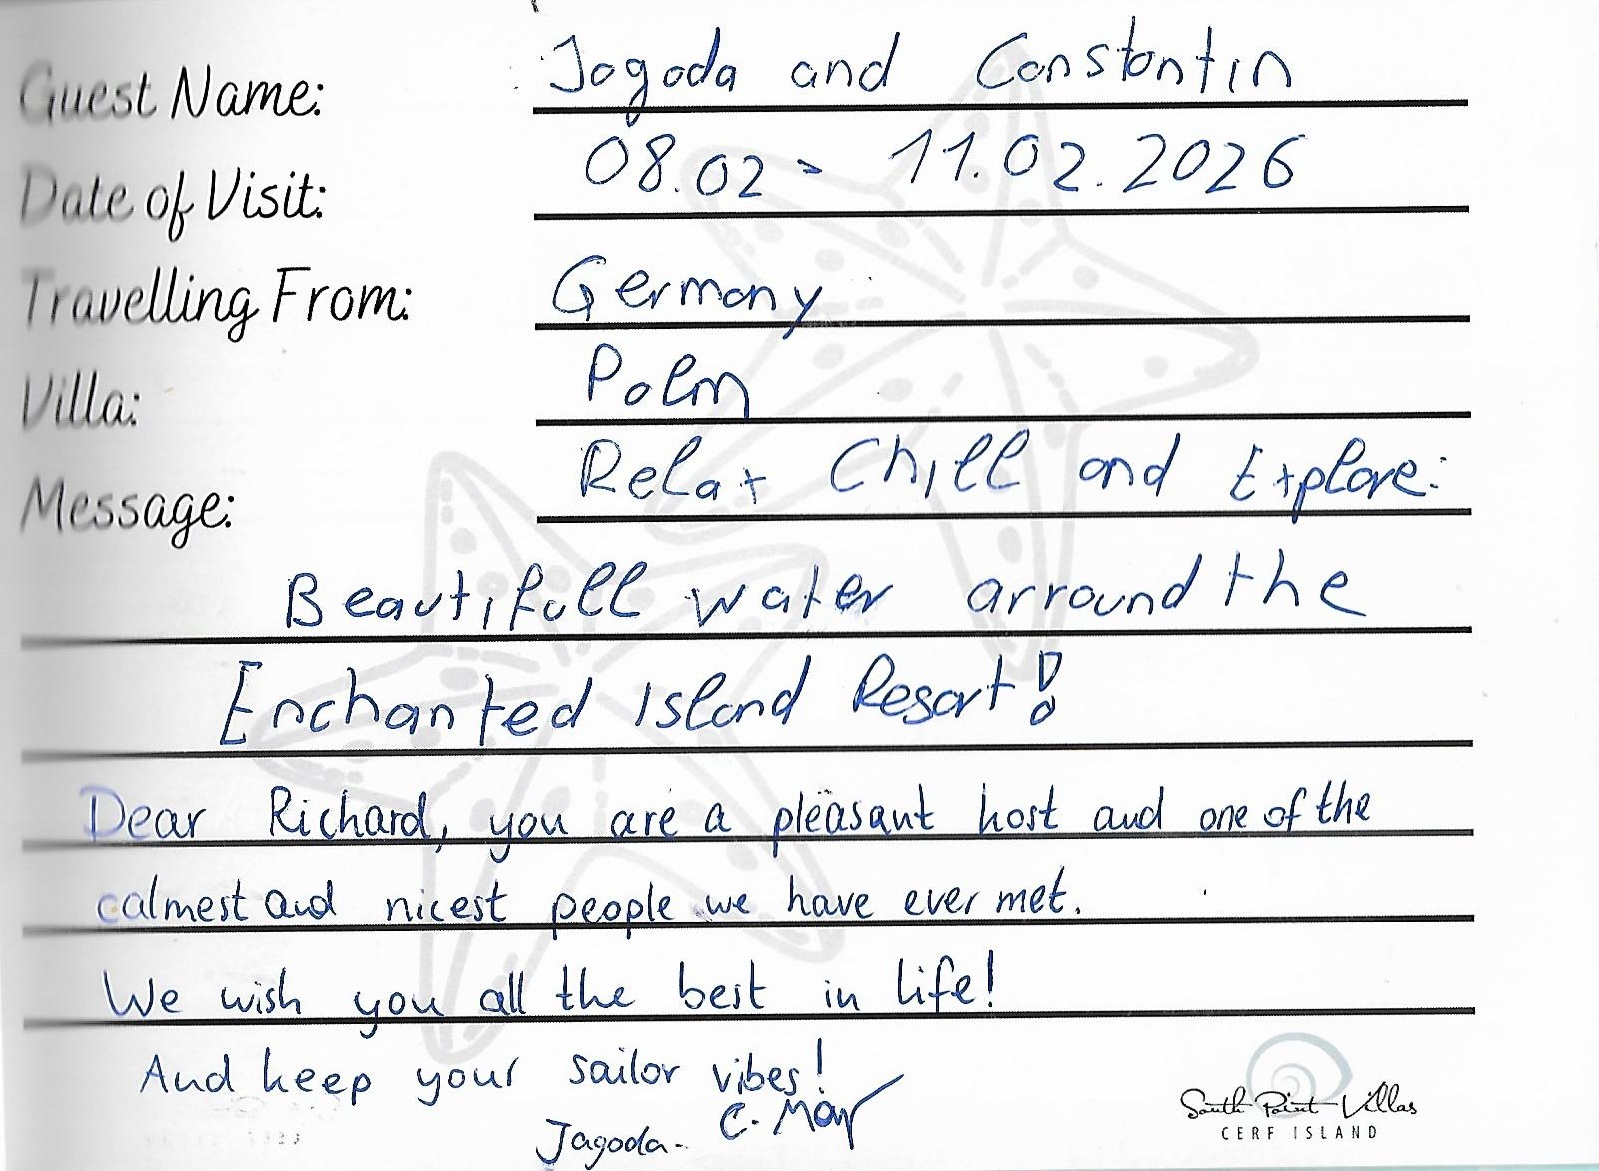 Guest Name: Jagoda and Constantin
Date of Visit: 08.02 - 11.02.2026
Travelling From: Germany
Villa: Palm
Message: Relax Chill and Explore:
Beautifull water arround the
Enchanted Island Resort!
Dear Richard, you are a pleasant host and one of the
calmest and nicest people we have ever met.
We wish you all the best in life!
And keep your sailor vibes!
Jagoda - C. May
South Point Villas
CERF ISLAND